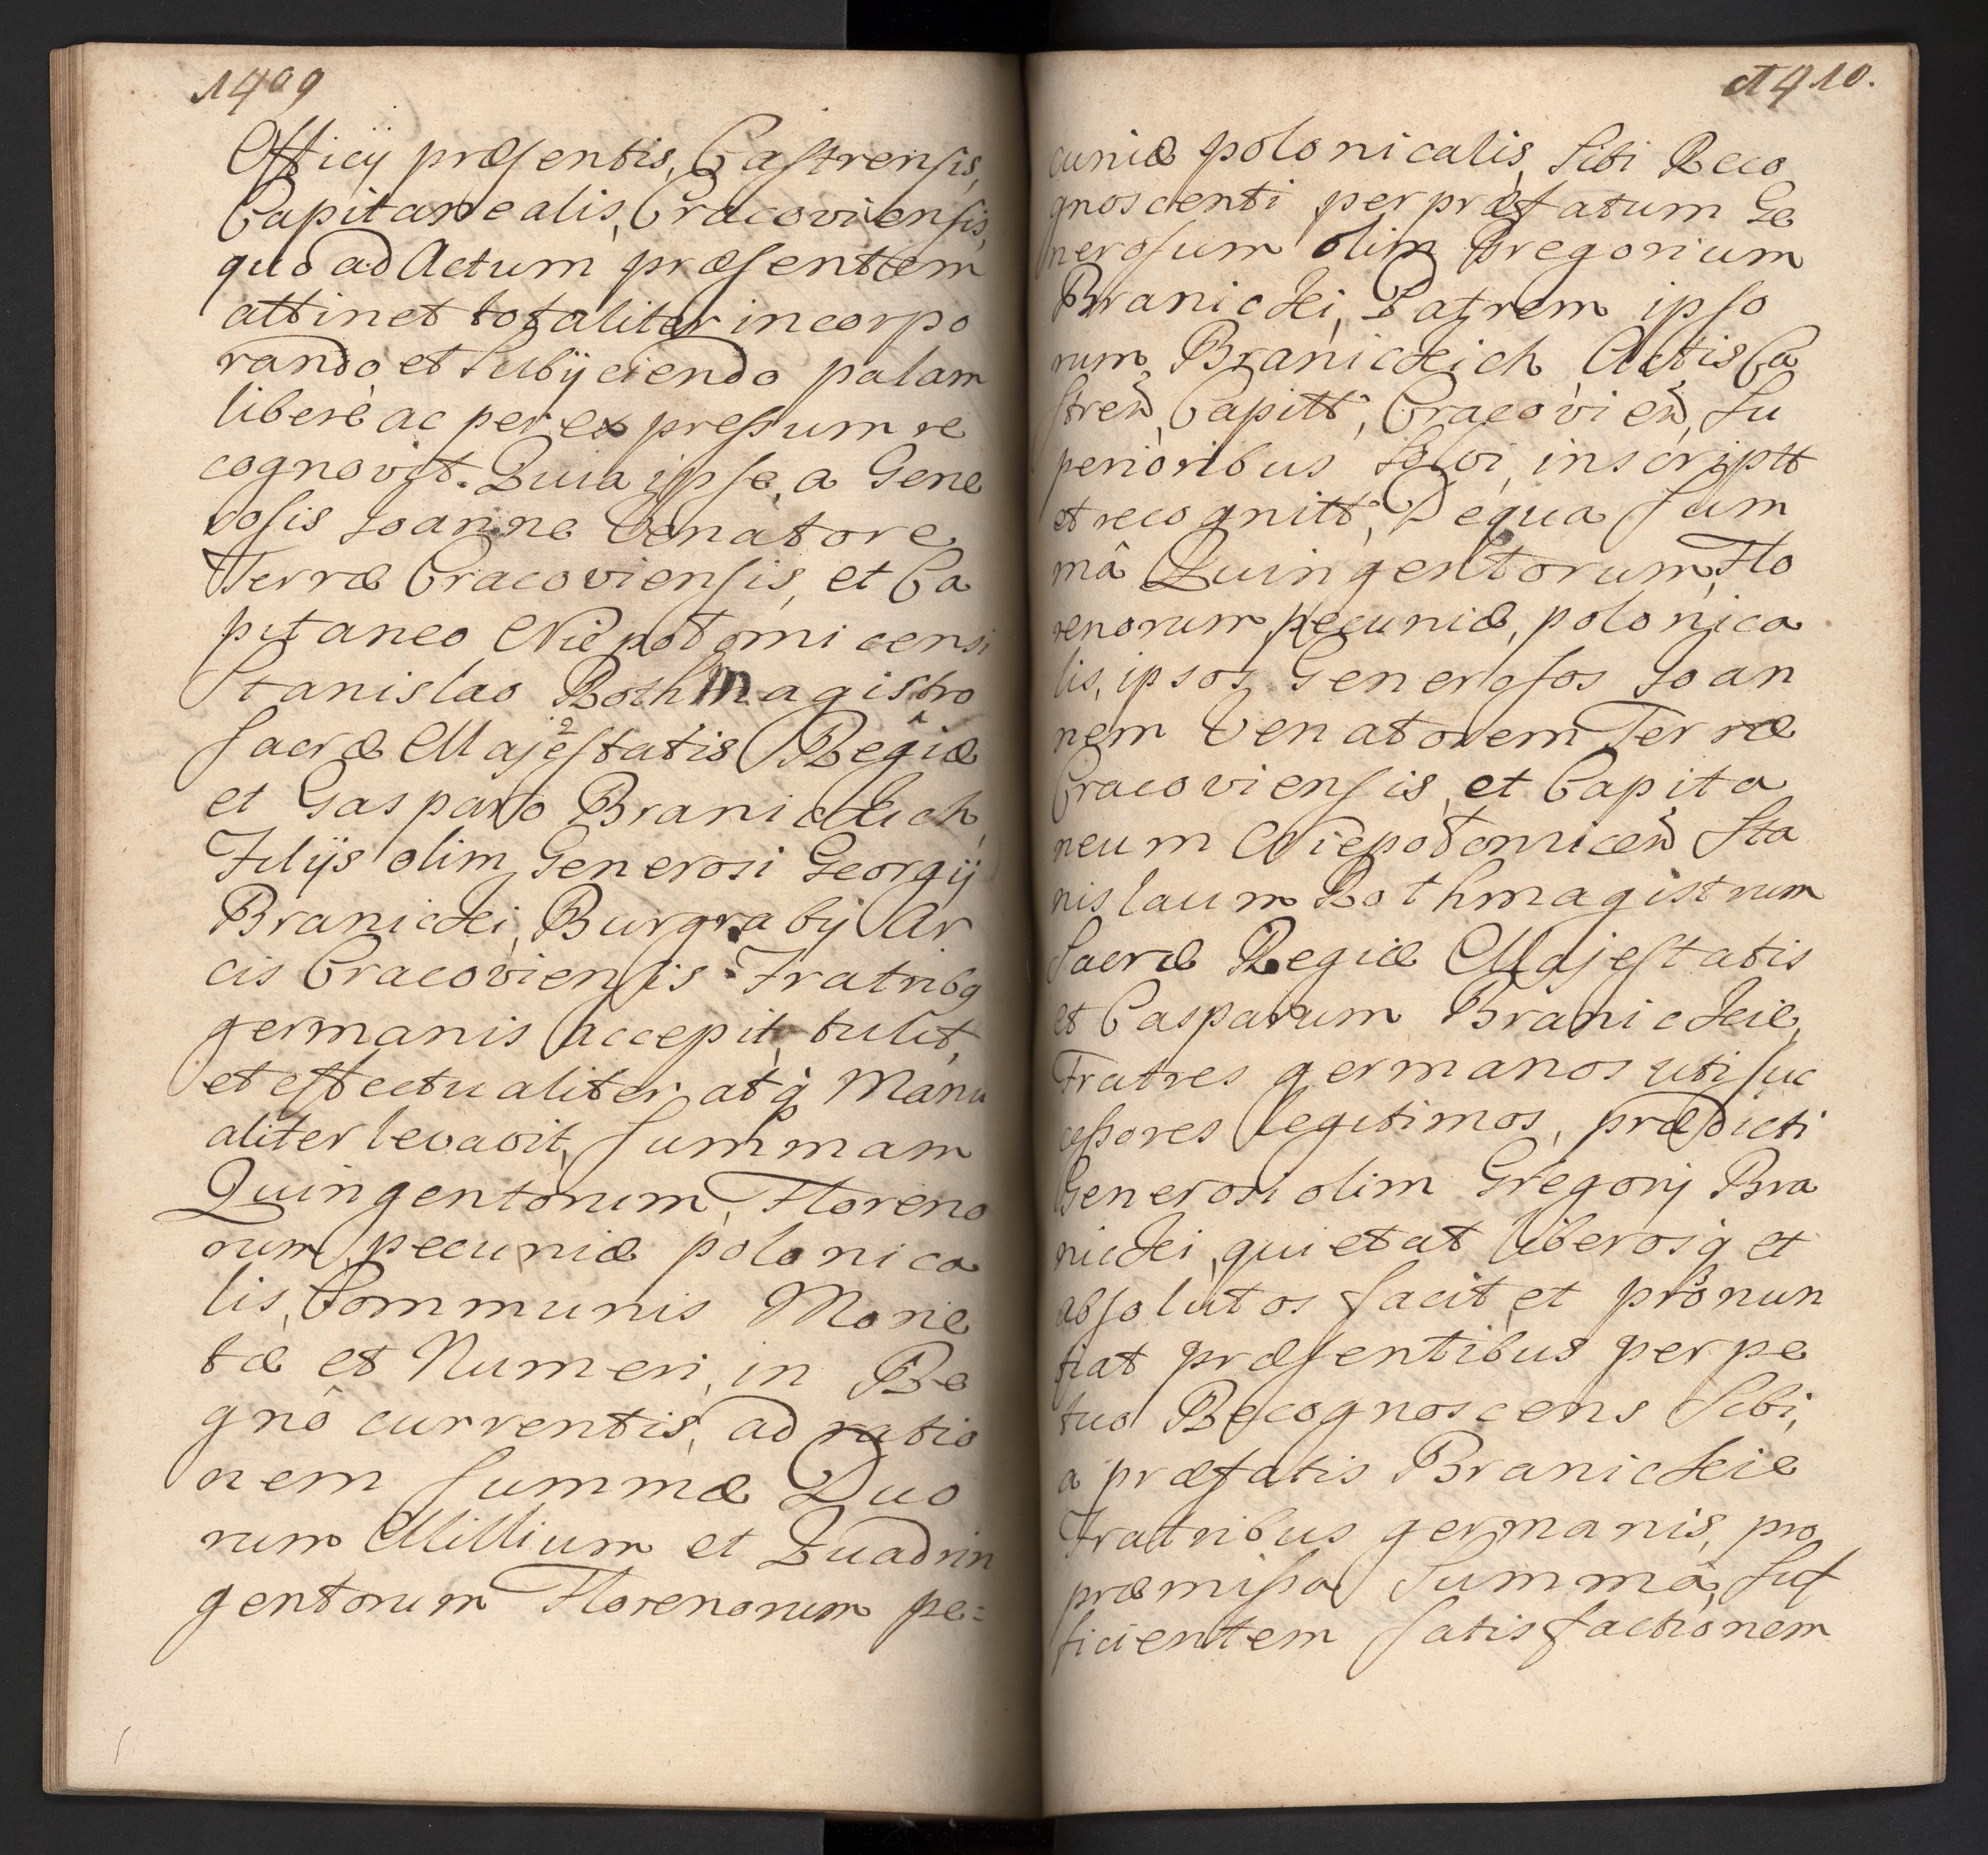 1409
Officij præsentis, Castrensis,
Capitanealis, Cracoviensis,
quo ad Actum præsentem
attinet totaliter incorpo
rando et Subijciendo palam
liberè ac per expressum re
cognovit. Quia ipse, a Gene
rosis Joanne Venatore
Terræ Cracoviensis, et Ca
pitaneo Niepołomicensi
Stanislao Rothmagistro
Sacræ Majestatis Regiæ
et Gasparo Branickich,
Filijs olim Generosi Georgij
Branicki, Burgrabij Ar
cis Cracoviensis Fratribq
germanis accepit, tulit,
et effectualiter, atq Manu
aliter levavit, Summam
Quingentorum, Floreno
rum pecuniæ polonica
lis, Communis Mone
tæ et Numeri, in Re
gnô currentis, ad ratio
nem Summæ Duo
rum Millium et Quadrin
gentorum Florenorum pe=
1410.
cuniæ polonicalis, Sibi Reco
gnoscenti per præfatum Ge
nerosum olim Gregorium
Branicki, Patrem ipso
rum Branickich Actis Ca
stren, Capitt, Cracovien, Su
perioribus inscriptt
et recognitt, De qua Sum
mâ Quingentorum, Flo
renorum pecuniæ, polonica
lis, ipsos Generosos Joan
nem Venatorem Terræ
Cracoviensis, et Capita
neum Niepołomicen Sta
nislaum Rothmagistrum
Sacræ Regiæ Majestatis
et Casparum Branickie,
Fratres germanos uti suc
cessores legitimos, prædicti
Generosi olim Gregorij Bra
nicki, quietat liberosq et
absolutos facit, et pronun
tiat præsentibus perpe
tuo Recognoscens Sibi,
a præfatis Branickie
Fratribus germanis, pro
præmissa Summâ, Suf
ficientem Satisfactionem